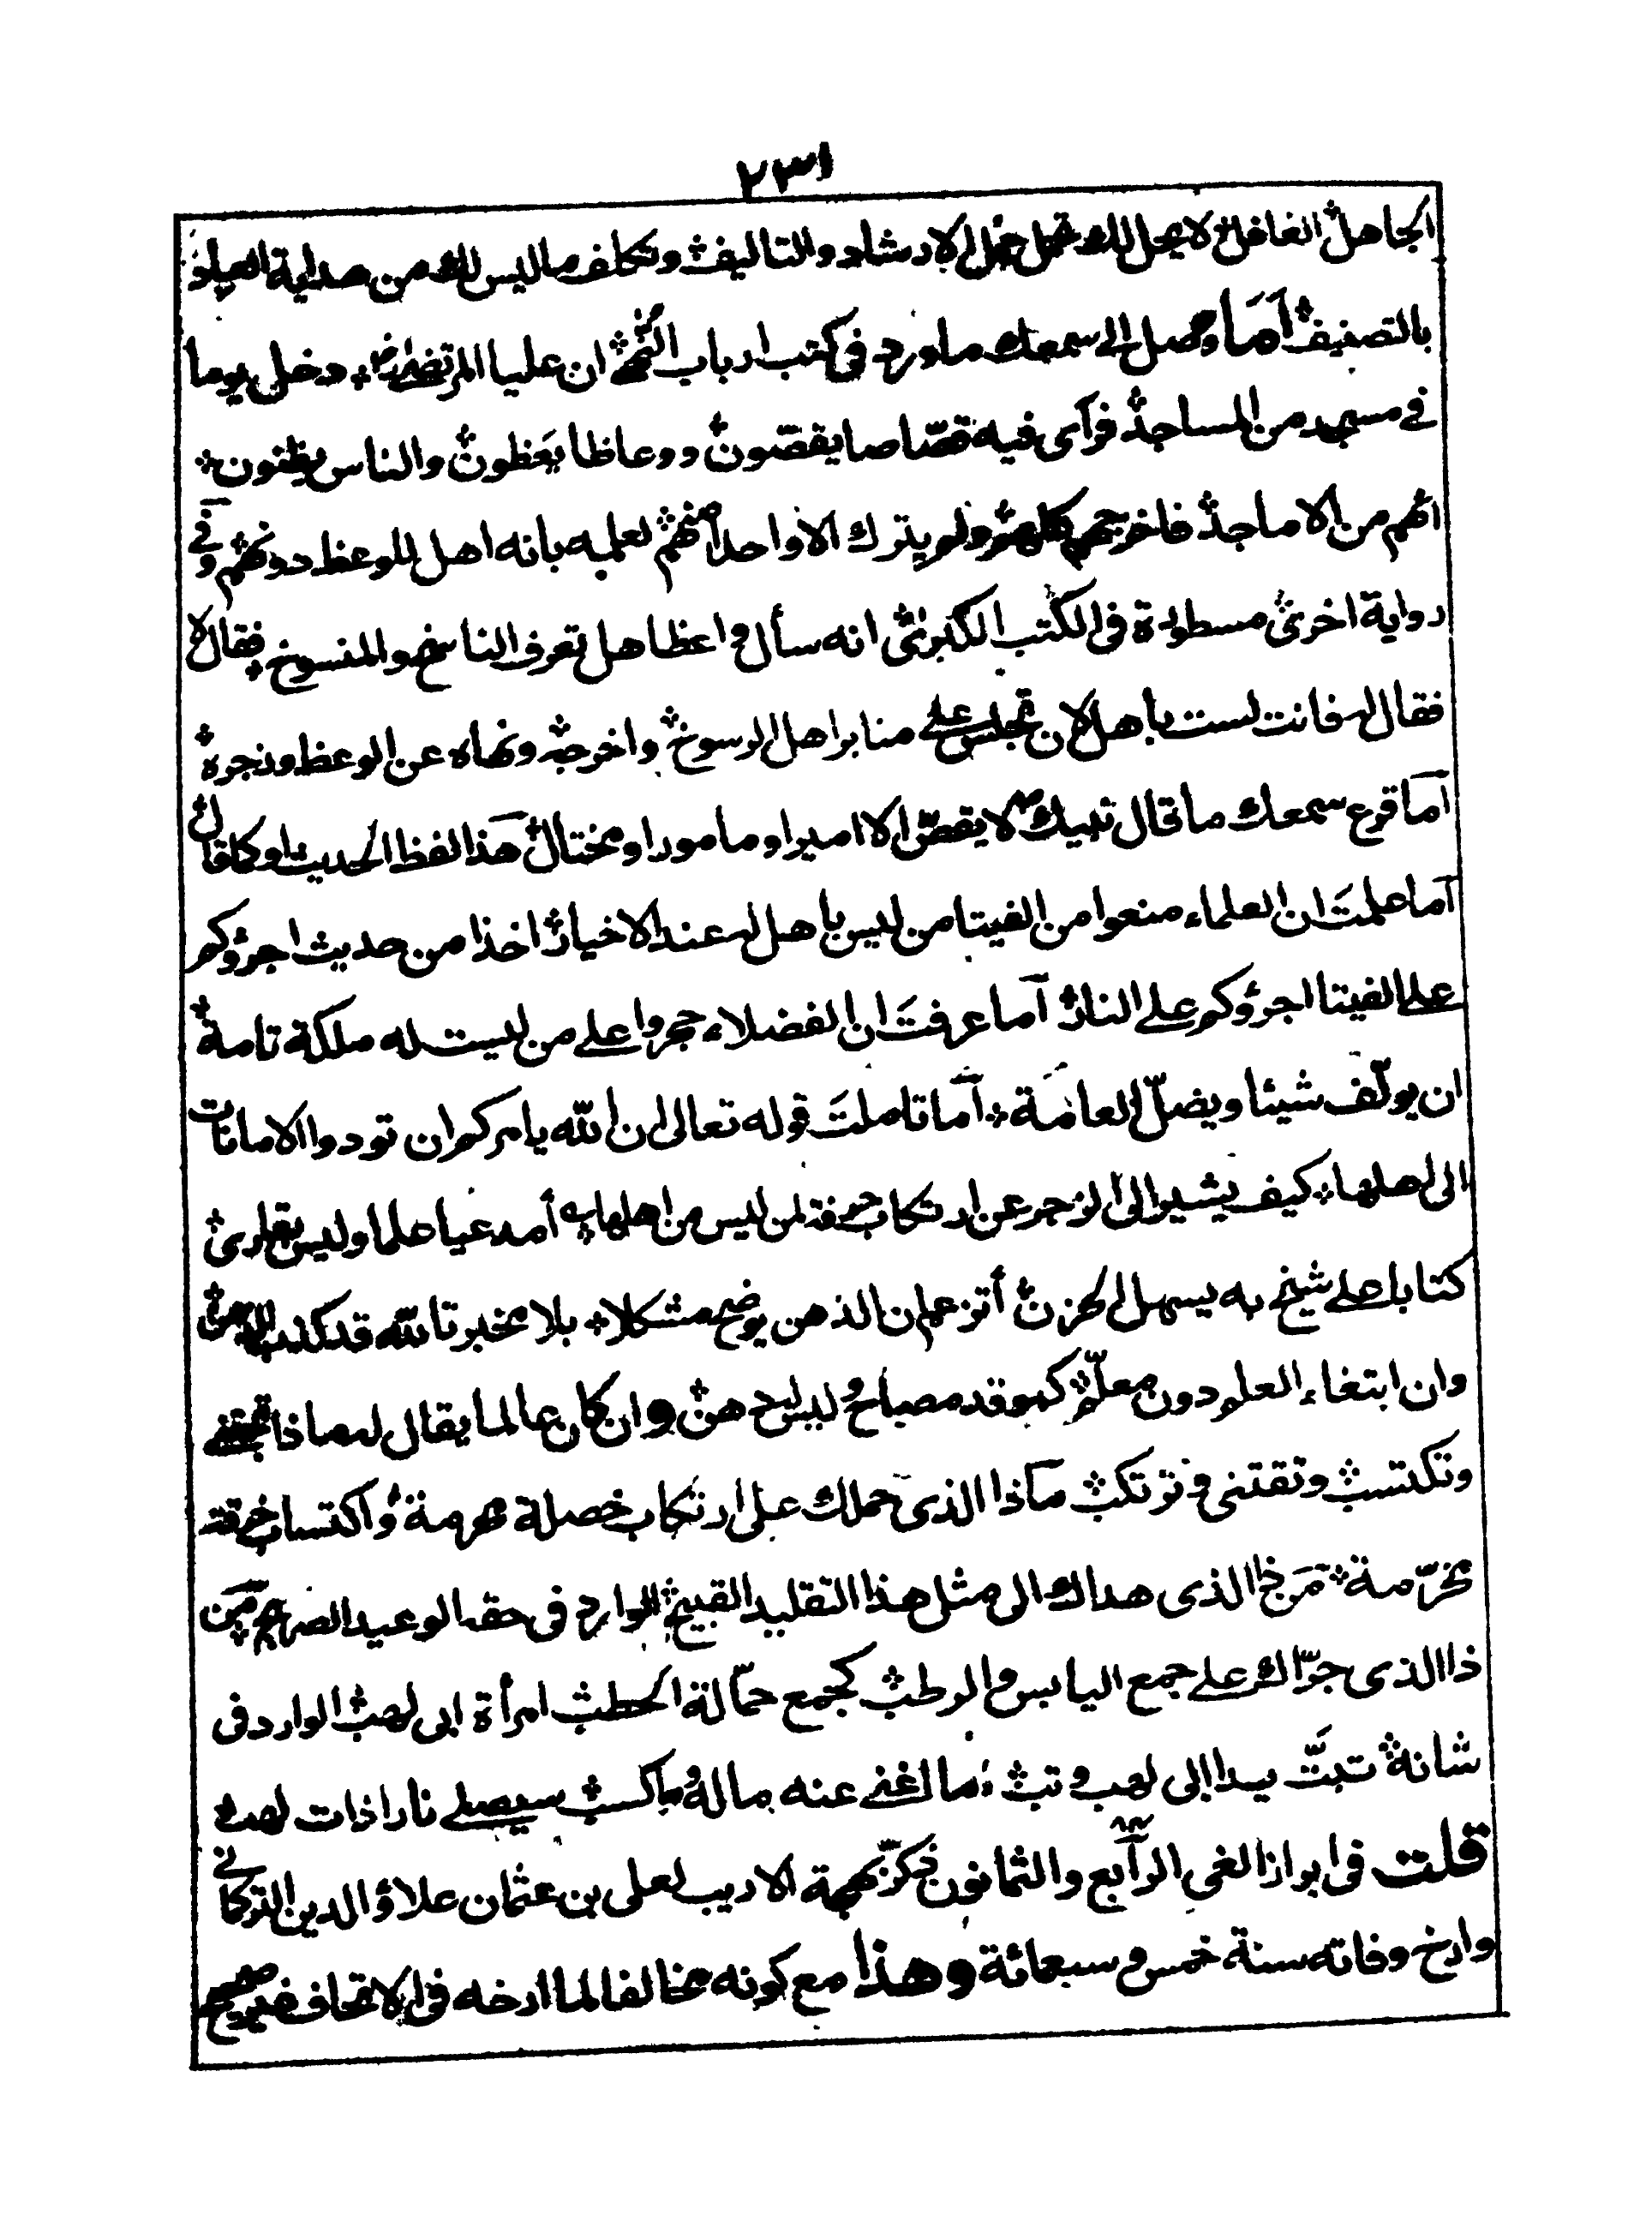 ٢٣١
الجاهل الغافل لا يحل لك تحمل حمل الارشاد والتاليف وتكلف ما ليس لك من هداية العباد
بالتصنيف أما وصل الى سمعك ما ورد في كتب ارباب ان عليا المرتضى رض دخل يوما
في مسجد من المساجد فرآى فيه قصّاصا يقصّون ووعاظا يعَظون والناس يظنون
انهم من الاماجد فاخرجهم كلهم ولم يترك الا واحدا منهم لعلمه بانه اهل للوعظ دونهم وفي
رواية اخرى مسطورة في الكتب الكبرى انه سأل واعظا هل تعرف الناسخ والمنسوخ فقال لا
فقال له فانت لست باهل لان تجلس على منابر اهل الرسوخ واخرجه ونهاه عن الوعظ وزجره
أما قرع سمعك ما قال نبيك صلعم لا يقصّ الا امير او مامور او مختال هذا لفظ الحديث او كما قال
أما علمتَ ان العلماء منعوا من الفيتا من ليس باهل له عند الاخيار اخذا من حديث اجرؤكم
على الفيتا اجرؤكم على النار أما عرفتَ ان الفضلاء حجروا على من ليست له ملكة تامة
ان يولّف شيئا ويضلّ العامة أما تاملتَ قوله تعالى ان الله يامركم ان تودوا الامانات
الى اهلها كيف يشير الى الزجر عن ارتكاب حرفة لمن ليس من اهلها أمدعيا علما وليس بقارئ
كتابا على شيخ به يسهل الحزن أتزعم ان الذهن يوضح مشكلا بلا مخبر تالله قد كذب الذهن
وان ابتغاء العلم دون معلّم كموقد مصباح وليس له دهن وان كان عالما يقال له ماذا تجتنى
وتكتسب وتقتنى وترتكب مآذا الذى حملك على ارتكاب خصلة محرمة واكتساب خرقة
مخرّمة مَن ذا الذى هداك الى مثل هذا التقليد القبيح الوارد في حقه الوعيد الصريح مَن
ذا الذى جرّاك على جمع اليابس والرطب كجمع حمّالة الحطب امرأة ابى لهب الوارد فى
شانه تبّت يدا ابى لهب وتب ما اغنى عنه ماله وما كسب سيصلى نارا ذات لهب
قلت فى ابراز الغى الرآبع والثمانون ذكر بهجة الاريب لعلى بن عثمان علاؤ الدين التركمانى
وارخ وفاته سنة خمس وسبعمائة وهذا مع كونه مخالفا لما ارخه فى الاتحاف غير صحيح